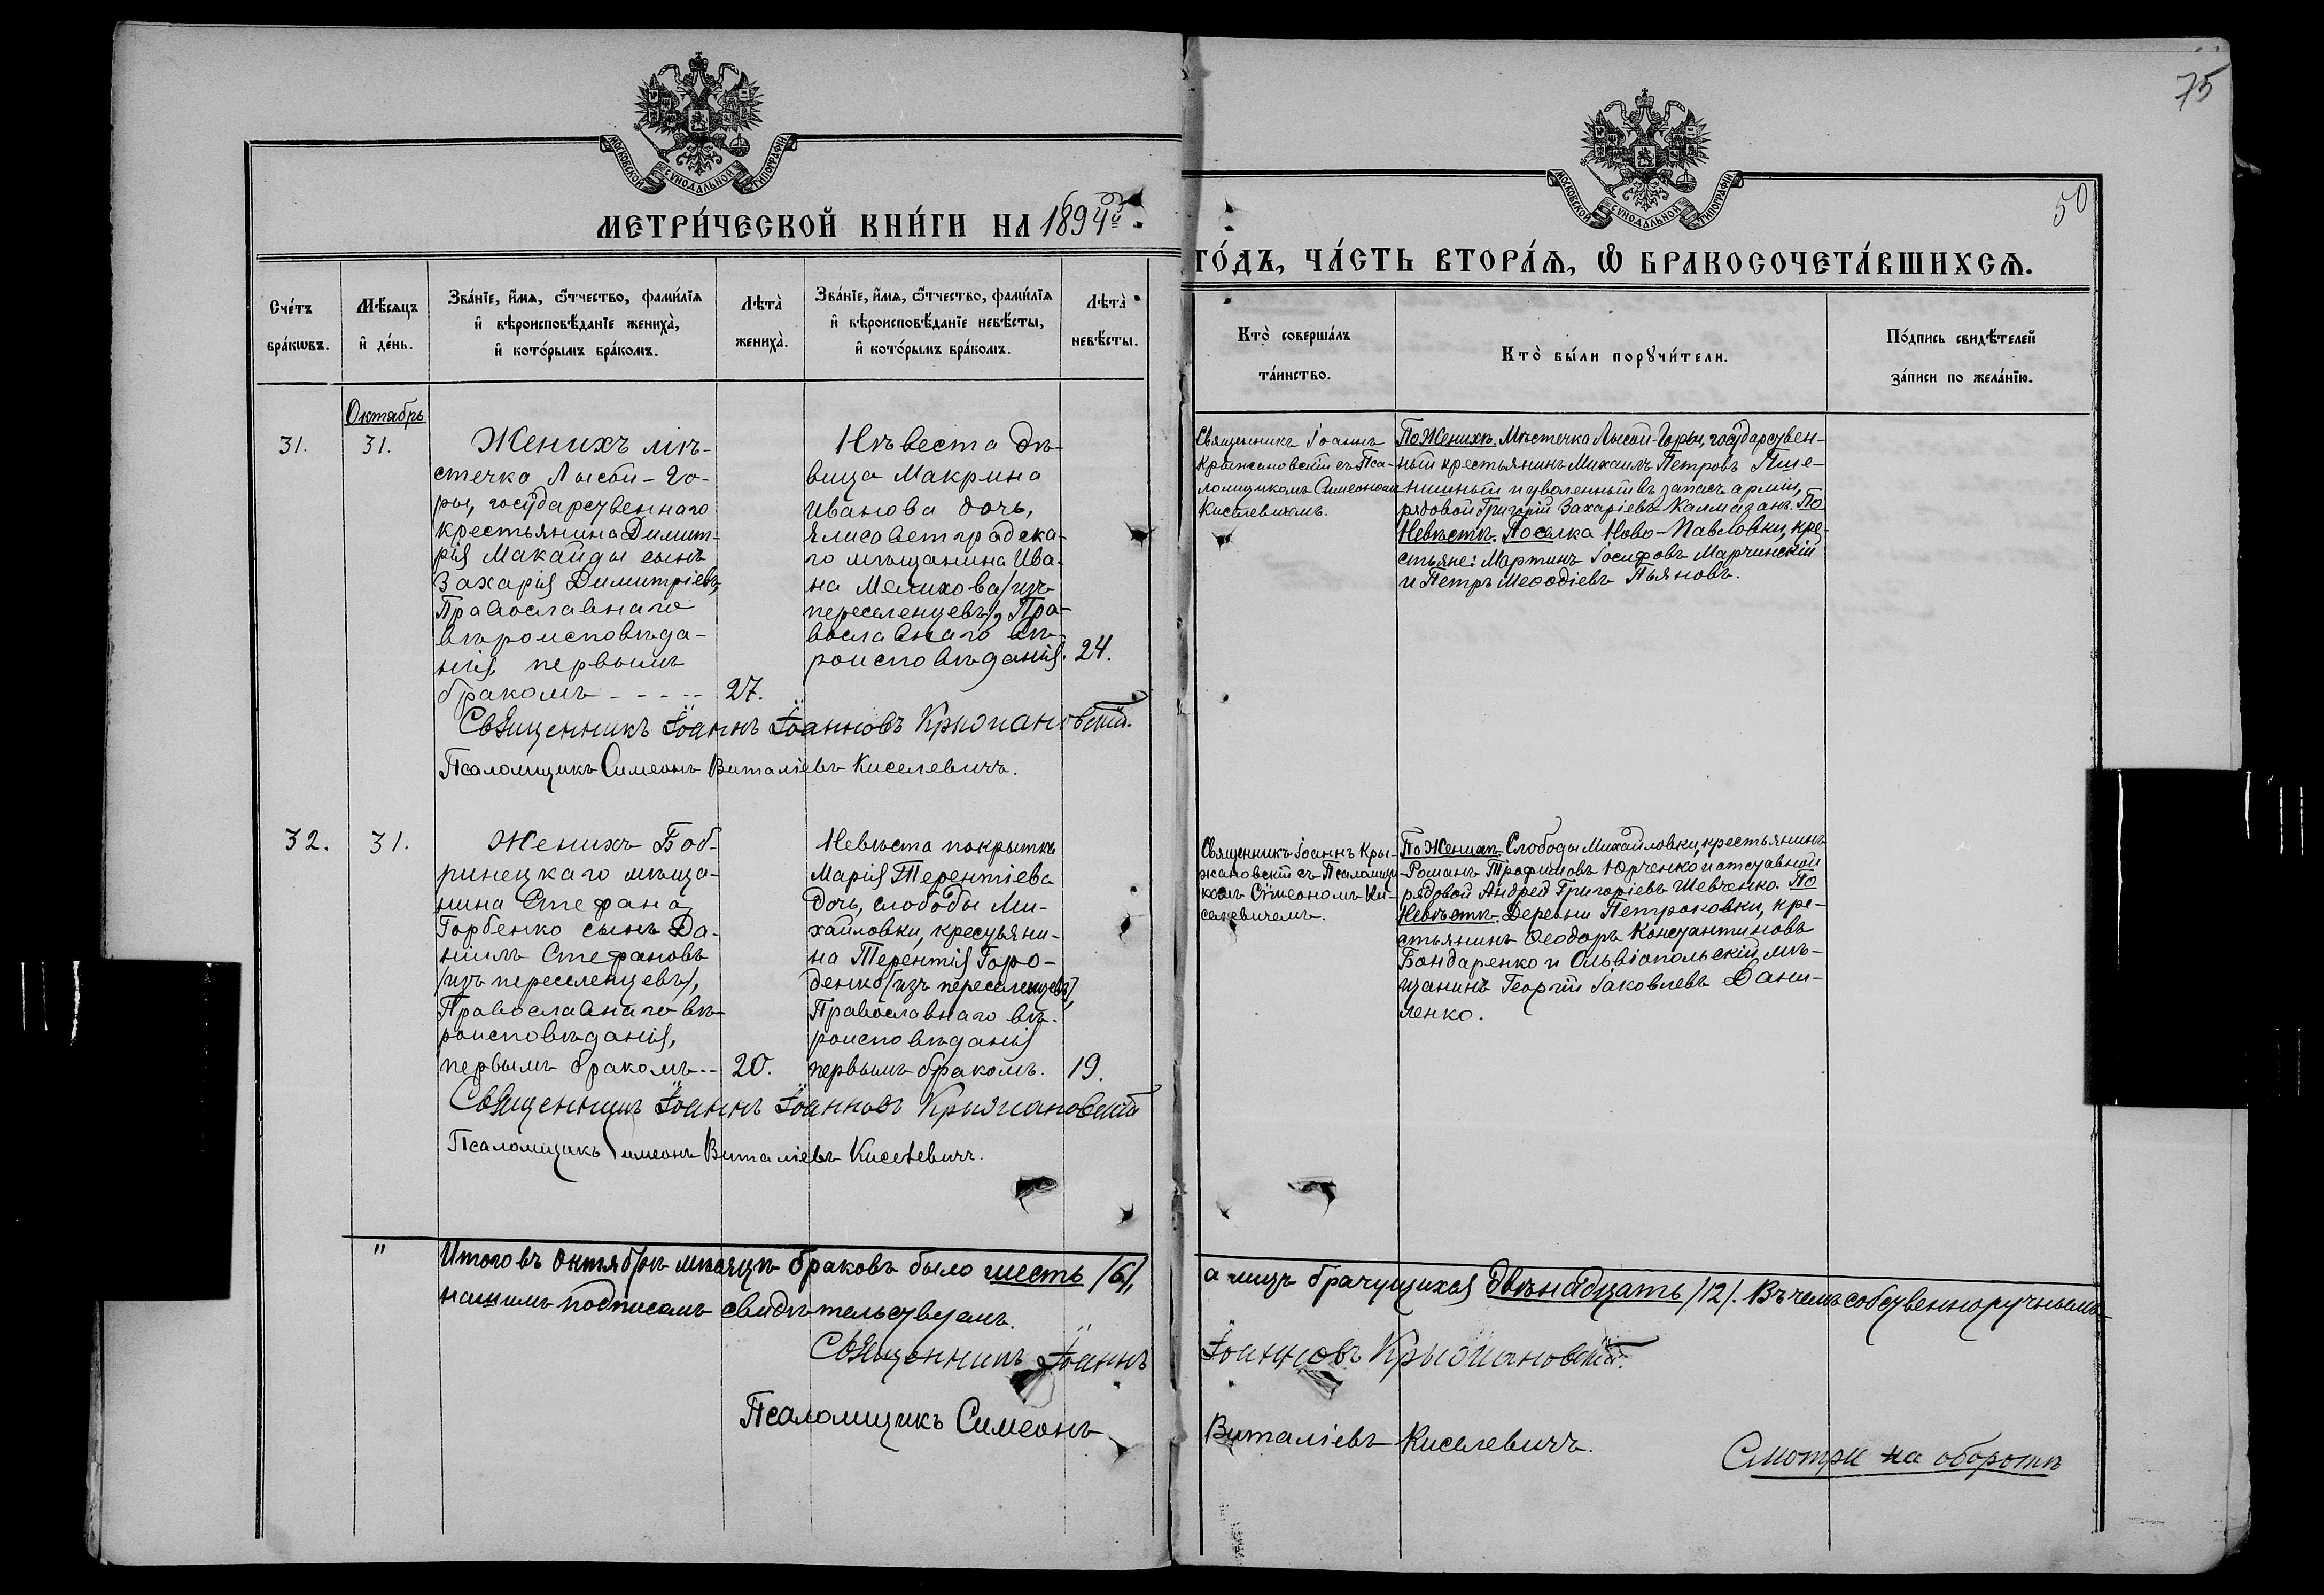 75
50
МОСКОВСКОЙ СѴНОДАЛЬНОЙ ТИПОГРАФІИ
МОСКОВСКОЙ СѴНОДАЛЬНОЙ ТИПОГРАФІИ
МЕТРИ́ЧЕСКОЙ КНИ́ГИ НА 1894й
ГО́ДЪ, ЧА́СТЬ ВТОРА́Ѧ, Ѡ҆ БРАКОСОЧЕТА́ВШИХСѦ.
Сче́тъ бра́кѡвъ.
Мѣ́сяцъ и҆ де́нь.
Зва́нїе, и҆́мѧ, ѻ҆́тчество, фами́лїѧ и҆ вѣроисповѣ́данїе жениха̀, и҆ кото́рымъ бра́комъ.
Лѣта̀ жениха̀.
Зва́нїе, и҆́мѧ, ѻ҆́тчество, фами́лїѧ и҆ вѣроисповѣ́данїе невѣ́сты, и҆ кото́рымъ бра́комъ.
Лѣта̀ невѣ́сты.
Кто̀ соверша́лъ та́инство.
Кто̀ бы́ли порꙋчи́тели.
По́дпись свидѣ́телей за́писи по жела́нїю.
Октябрь
31.
31.
Женихъ мѣ-
стечка Лысой-Го-
ры, государственнаго
крестьянина Димит-
рія Макайды сынъ
Захарія Димитріевъ,
Православнаго
вѣроисповѣда-
нія, первымъ
бракомъ - - - - -
27.
Нѣвеста дѣ-
вица Макрина
Иванова дочь,
Елисаветградска-
го мѣщанина Ива-
на Мелихова /изъ
переселенцевъ/, Пра-
вославнаго вѣ-
роисповѣданія.
24.
Священникъ Іоаннъ
Крыжановскій съ Пса-
ломщикомъ Симеономъ
Киселевичемъ.
По Женихѣ. Мѣстечка Лысой-Горы, государствен-
ный крестьянинъ Михаилъ Петровъ Пше-
ничный и уволенный въ запасъ арміи,
рядовой Григорій Захаріевъ Калмазанъ. По
Невѣстѣ. Поселка Ново-Павловки, кре-
стьяне: Мартинъ Іосифовъ Марчинскій
и Петръ Меѳодіевъ Пьяновъ.
Священникъ Іоаннъ Іоанновъ Крыжановскій.
Псаломщикъ Симеонъ Виталіевъ Киселевичъ.
32.
31.
Женихъ Боб-
ринецкаго мѣща-
нина Стефана
Горбенко сынъ Да-
ніилъ Стефановъ
/изъ переселенцевъ/,
Православнаго вѣ-
роисповѣданія,
первымъ бракомъ. --
20.
Невѣста покрытка
Марія Терентіева
дочь, слободы Ми-
хайловки, крестьяни-
на Терентія Горо-
денко /изъ переселенцевъ/,
Православнаго вѣ-
роисповѣданія
первымъ бракомъ.
19.
Священникъ Іоаннъ Кры-
жановскій съ Псаломщи-
комъ Симеономъ Ки-
селевичемъ.
По Женихѣ. Слободы Михайловки, крестьянинъ
Романъ Трофимовъ Юрченко и отставной
рядовой Андрей Григоріевъ Шевченко. По
Невѣстѣ. Деревни Петраковки, кре-
стьянинъ Ѳеодоръ Константиновъ
Бондаренко и Ольвіопольскій мѣ-
щанинъ Георгій Іаковлевъ Дани-
ленко.
Священникъ Іоаннъ Іоанновъ Крыжановскій
Псаломщикъ Симеонъ Виталіевъ Киселевичъ.
" Итого въ октябрѣ мѣсяцѣ браковъ было шесть /6/,
а лицъ брачущихся двѣнадцать /12/. Въ чемъ собственноручнымъ
нашимъ подписомъ свидѣтельствуемъ.
Священникъ Іоаннъ Іоанновъ Крыжановскій.
Псаломщикъ Симеонъ Виталіевъ Киселевичъ.
Смотри на оборотѣ